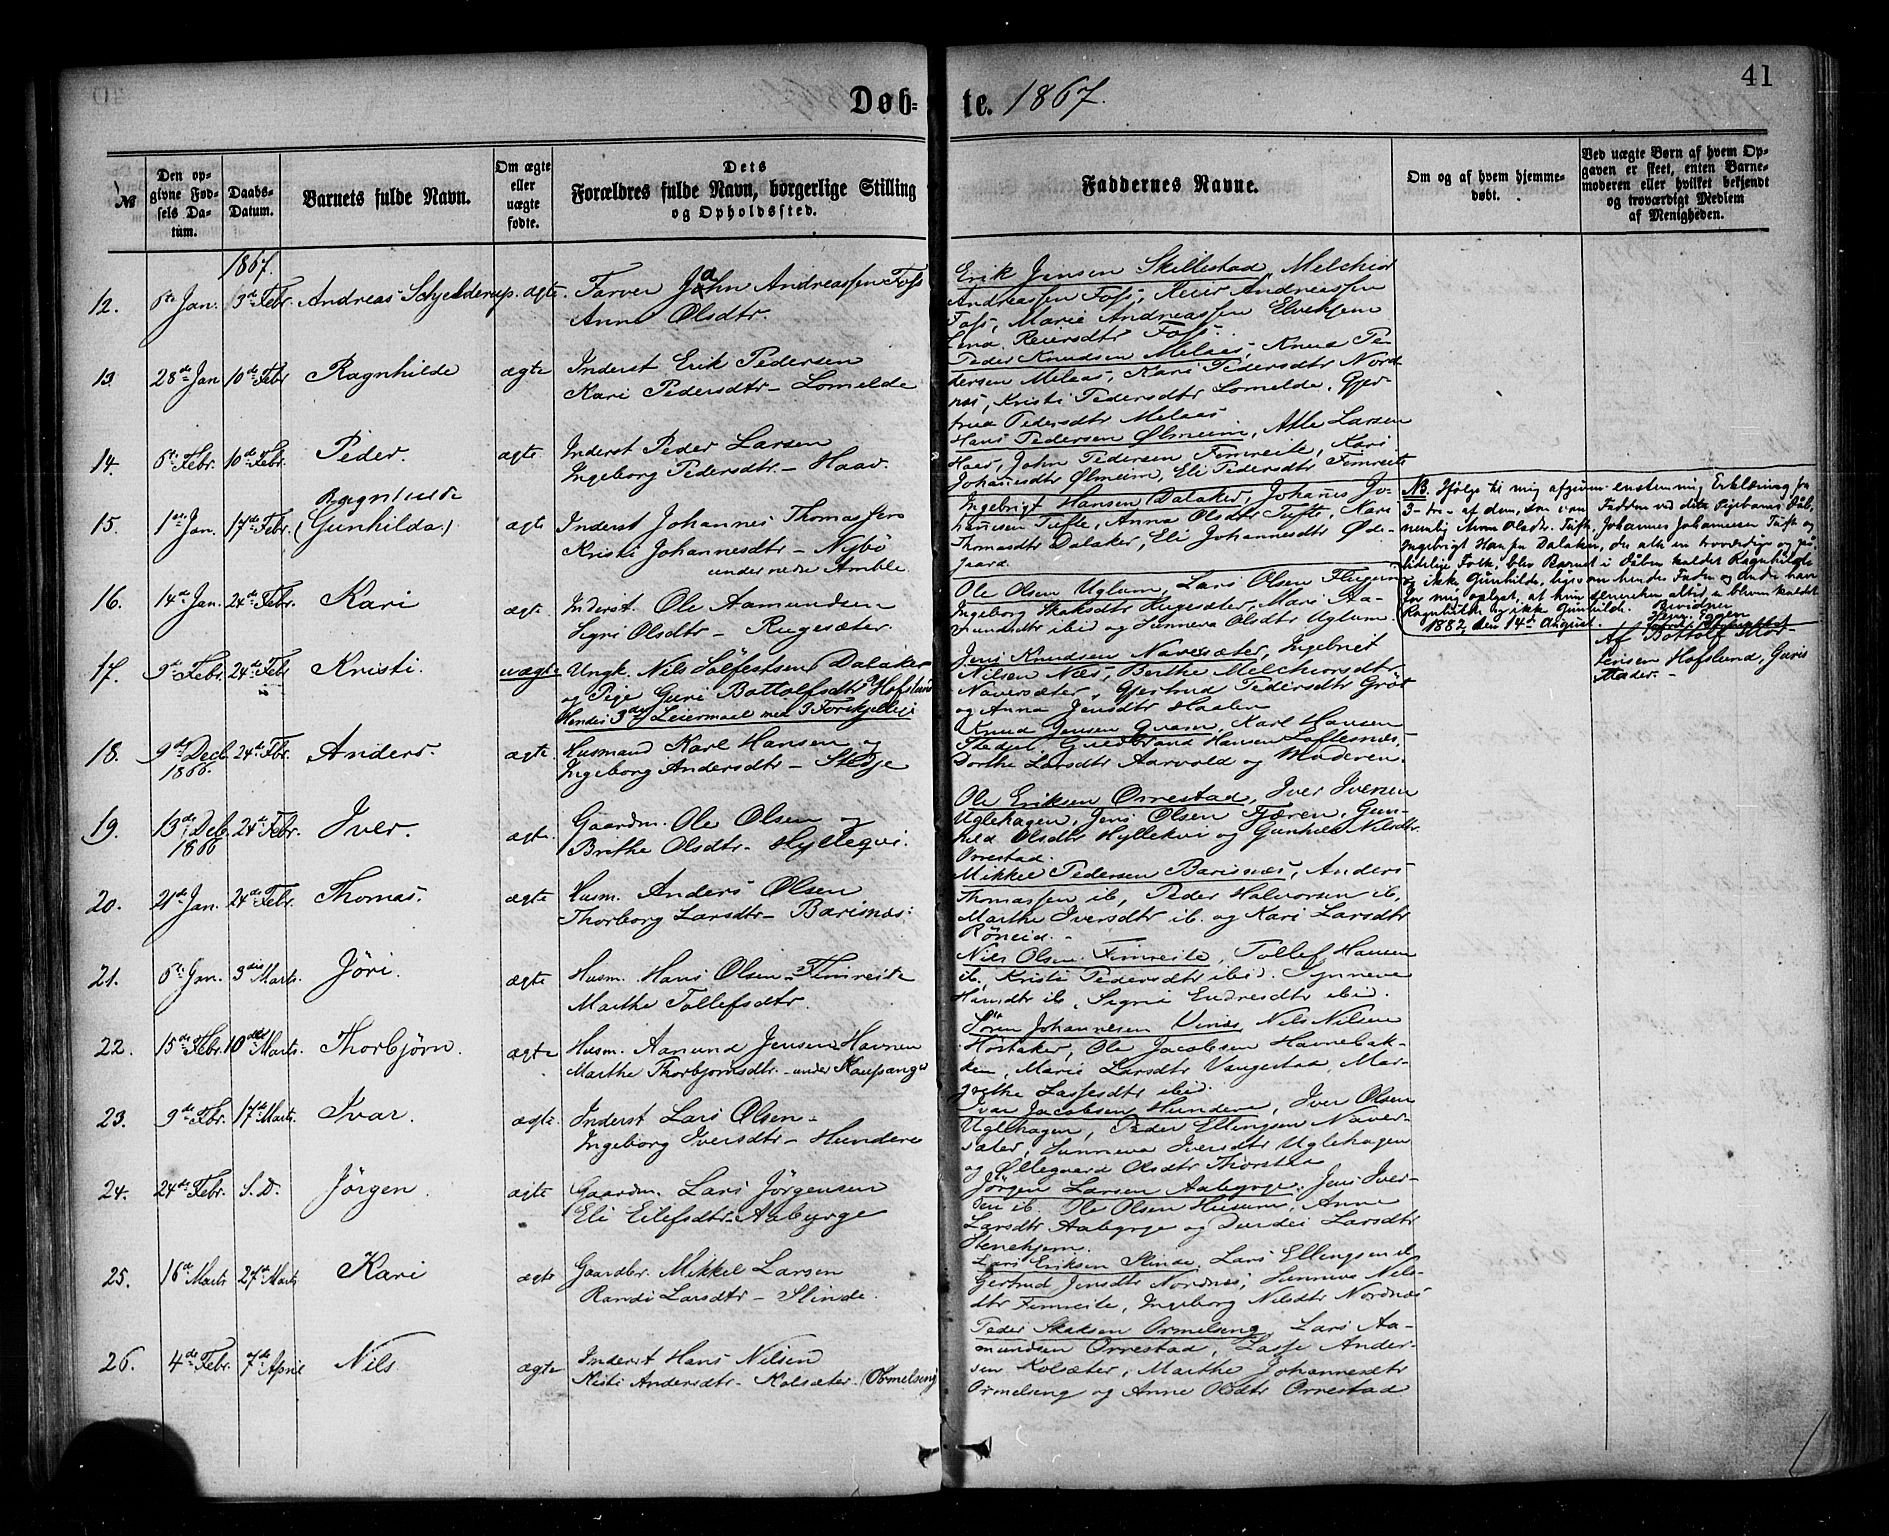 Døb-te. 1867.
41
№
Den opgivne Fødsels Datum.
Daabs-Datum.
Barnets fulde Navn.
Om ægte eller uægte fødte.
Dets Forældres fulde Navn, borgerlige Stilling og Opholdssted.
Faddernes Navne.
Om og af hvem hjemmedøbt.
Ved uægte Børn af hvem Opgaven er skeet, enten Barnemoderen eller hvilket bekjendt og troværdigt Medlem af Menigheden.
1867.
12. 6te Jan. 3de Febr. Andreas Schjelderup. ægte. Farver John Andreassen Foss
Anne Olsdtr.
Erik Jensen Skellestad, Melchior
Andreassen Foss, Reier Andreassen
Foss, Marie Andreassen Elvehjem
Lena Reiersdtr Foss.
13. 28de Jan 10de Febr Ragnhilde ægte Inderst Erik Pedersen
Kari Pedersdtr - Lomelde
Peder Knudsen Melaas, Knud Pe-
dersen Melaas, Kari Pedersdtr Nord-
næs, Kristi Pedersdtr Lomelde, Gjer-
trud Pedersdtr Melaas
14. 6te Febr. 10de Febr. Peder. ægte Inderst Peder Larsen
Ingeborg Pedersdtr - Haav.
Hans Pedersen Ølmeim, Atle Larsen
Haav, John Pedersen Fimreite, Kari
Johannesdtr Ølmeim, Eli Pedersdtr Fimreite
15. 1ste Jan. 17de Febr. Ragnhilde
(Gunhilda) ægte Inderst Johannes Thomassen
Kristi Johannesdtr - Nybø
under nedre Amble.
Ingebrigt Hansen Dalaker, Johannes Jo-
hannesen Tufte, Anna Olsdtr Tufte, Kari
Thomasdtr Dalaker, Eli Johannesdtr Øde-
gaard.
NB. Ifølge til mig afgiven enstemmig Erklæring fra
3-tre- af dem, som vare Faddere ved dette Pigebarns Daab,
nemlig Anna Olsdtr. Tufte, Johannes Johannesen Tufte og
Ingebrigt Hansen Dalaker, der alle er troværdige og paa-
lidelige Folk, blev Barnet i Daaben kaldet Ragnhilde
og ikke Gunhilde, ligesom hendes Fader og Moder have
for mig oplyst, at hun derefter altid er bleven kaldet
Ragnhilde og ikke Gunhilde. Bevidner
1882, den 14de August.
16. 14de Jan. 24de Febr. Kari ægte Inderst. Ole Aamundsen
Signi Olsdtr - Rugesæter.
Ole Olsen Uglum, Lars Olsen Flugeim
Ingeborg Skaksdtr Rugesæter, Mari Aa-
mundsdtr ibid og Sunneva Olsdtr Uglum.
17. 9de Febr. 24de Febr Kristi. uægte Ungk. Nils Sølfestsen Dalaker
og Pige Guri Bottolfsdtr Hofslund
Hendes 3die Leiermaal med 3 Forskjellige
Jens Knudsen Navesæter, Ingebriet
Nilsen Næs, Berthe Melchiorsdtr
Navesæter, Gjertrud Pedersdtr Grøt
og Anna Jensdtr Haalen
Af Bottolf Mor-
tensen Hofslund, Guris
Fader. -
18. 9de Decb. 24de Febr. Anders. ægte. Husmand Karl Hansen og
1866.
Ingeborg Andersdtr - Stedje
Knud Jensen Qvam, Karl Hansen
Stedje, Guldbrand Hansen Loftesnæs,
Dorthe Larsdtr Aarvold og Moderen.
19. 13de Decb. 24de Febr. Iver. ægte. Gaardm. Ole Olsen og
1866
Brithe Olsdtr - Hylleqvi.
Ole Eriksen Orrestad, Iver Iversen
Uglehagen, Jens Olsen Fjæren, Gun-
hild Olsdtr Hyllekvi og Gunhild Nilsdtr.
Orrestad.
20. 21de Jan. 24de Febr. Thomas. ægte Husm. Anders Olsen
Thorborg Larsdtr - Barsnæs:
Mikkel Pedersen Barsnæs, Anders
Thomassen ib, Peder Halvorsen ib,
Marthe Iversdtr ib. og Kari Larsdtr
Røneid. -
21. 6te Jan. 3die Marts. Jöri. ægte Husm. Hans Olsen - Fimreite
Marthe Tollefsdtr.
Nils Olsen Fimreite, Tollef Hansen
ib, Kristi Pedersdtr ibid. Synneva
Hansdtr ib, Signi Endresdtr ibid.
22. 15de Febr. 10de Marts. Thorbjørn. ægte Husm. Aamund Jensen Havnen
Marthe Thorbjørnsdtr. - under Kaupanger
Søren Johannesen Vinæs, Nils Nilsen
Høstaker, Ole Jacobsen Havnebak-
ken, Maris Larsdtr Vangestad, Mar-
grethe Lassesdtr ibid.
23. 9de Febr. 17de Marts. Ivar. ægte. Inderst Lars Olsen -
Ingeborg Iversdtr - Hundere
Ivar Jacobsen Hundere, Iver Olsen
Uglehagen, Peder Ellingsen Naver-
sæter, Sunneva Iversdtr Uglehagen
og Øllegaard Olsdtr Thorstad
24. 24de Febr. S.D. Jörgen. ægte Gaardm. Lars Jörgensen
Eli Eilefsdtr - Aabyrge
Jørgen Larsen Aabyrge, Jens Iver-
sen ib. Ole Olsen Husum, Anne
Larsdtr Aabyrge og Durdei Larsdtr
Stenehjem.
25. 16de Marts 27de Marts Kari ægte Gaardbr. Mikkel Larsen
Randi Larsdtr - Slinde.
Lars Eriksen Slinde, Lars Ellingsen ib.
Gertrud Jensdtr Nordnæs, Sunneva Nils-
dtr Fimreite, Ingeborg Nilsdtr Nordnæs
26. 4de Febr. 7de April Nils ægte Inderst Hans Nilsen
Kristi Andersdtr - Kolsæter. (Ormelseng)
Peder Skaksen Ormelseng, Lars Aa-
mundsen Orrestad, Lasse Ander-
sen Kolsæter, Marthe Johannesdtr
Ormelseng og Anne Olsdtr Orrestad